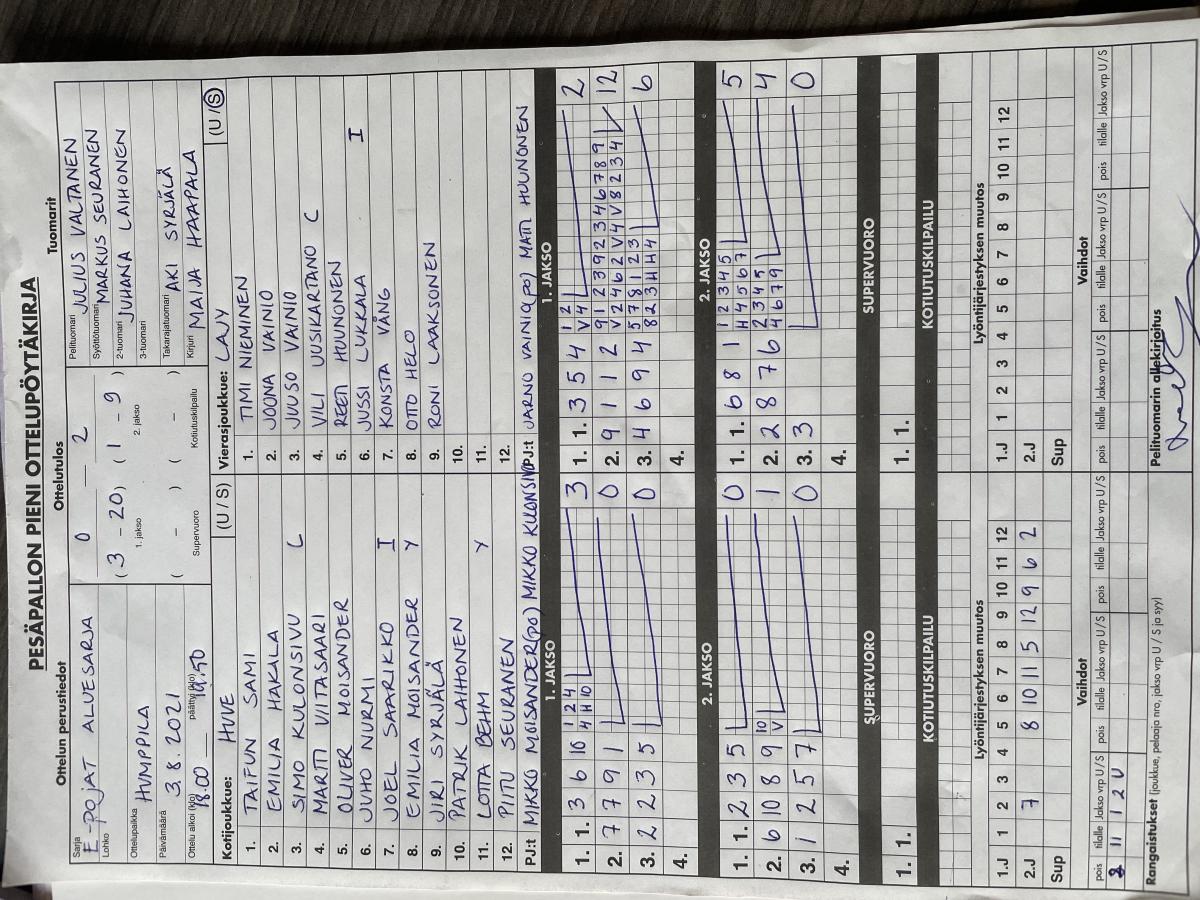 PESÄPALLON PIENI OTTELUPÖYTÄKIRJA
Ottelun perustiedot
Sarja
E-POJAT ALUESARJA
Lohko
Ottelupaikka
HUMPPILA
Päivämäärä
3.8.2021
Ottelu alkoi (klo) 18.00 päättyi (klo) 19.50
Ottelutulos
0 — 2
(3 - 20) (1 - 9)
1. jakso 2. jakso
( - ) ( - )
Supervuoro Kotiutuskilpailu
Tuomarit
Pelituomari JULIUS VALTANEN
Syöttötuomari MARKUS SEURANEN
2-tuomari JUHANA LAIHONEN
3-tuomari
Takarajatuomari AKI SYRJÄLÄ
Kirjuri MAIJA HAAPALA
Kotijoukkue: HUVE (U / S)
1. TAIFUN SAMI
2. EMILIA HAKALA
3. SIMO KULONSIVU C
4. MARTTI VIITASAARI
5. OLIVER MOISANDER
6. JUHO NURMI
7. JOEL SAARIKKO I
8. EMILIA MOISANDER Y
9. JIRI SYRJÄLÄ
10. PATRIK LAIHONEN
11. LOTTA BEHM Y
12. PIITU SEURANEN
PJ:t MIKKO MOISANDER(po) MIKKO KULONSIVU
Vierasjoukkue: LAJY (U / S)
1. TIMI NIEMINEN
2. JOONA VAINIO
3. JUUSO VAINIO
4. VILI UUSIKARTANO C
5. REETI HUUNONEN
6. JUSSI LUKKALA I
7. KONSTA VÅNG
8. OTTO HELO
9. RONI LAAKSONEN
10.
11.
12.
PJ:t JARNO VAINIO(po) MATI HUUNONEN
1. JAKSO 1. JAKSO
1. 1. 3 6 10 1 2 4 3
4 H 10
2. 7 7 9 1 0
3. 2 2 3 5 0
4.
1. 1. 3 5 4 1 2 2
V 4
2. 9 1 1 2 9 1 2 3 9 2 3 4 6 7 8 9 12
V 2 4 6 2 V 4 V 8 2 3 4
3. 4 6 9 4 5 7 8 1 2 3 6
8 2 3 H H 4
4.
2. JAKSO 2. JAKSO
1. 1. 2 3 5 0
2. 6 10 8 9 10 1
V
3. 1 2 5 7 0
4.
1. 1. 6 8 1 1 2 3 4 5 5
H 4 5 6 7
2. 2 8 7 6 2 3 4 5 4
4 6 7 9
3. 3 0
4.
SUPERVUORO SUPERVUORO
1. 1.
1. 1.
KOTIUTUSKILPAILU KOTIUTUSKILPAILU
Lyöntijärjestyksen muutos
1.J 1 2 3 4 5 6 7 8 9 10 11 12
2.J 7 8 10 11 5 12 9 6 2
Sup
Lyöntijärjestyksen muutos
1.J 1 2 3 4 5 6 7 8 9 10 11 12
2.J
Sup
Vaihdot
pois tilalle Jakso vrp U/S pois tilalle Jakso vrp U/S pois tilalle Jakso vrp U/S
8 11 1 2 U
Vaihdot
pois tilalle Jakso vrp U/S pois tilalle Jakso vrp U/S pois tilalle Jakso vrp U/S
Rangaistukset (joukkue, pelaaja nro, jakso vrp U / S ja syy)
Pelituomarin allekirjoitus